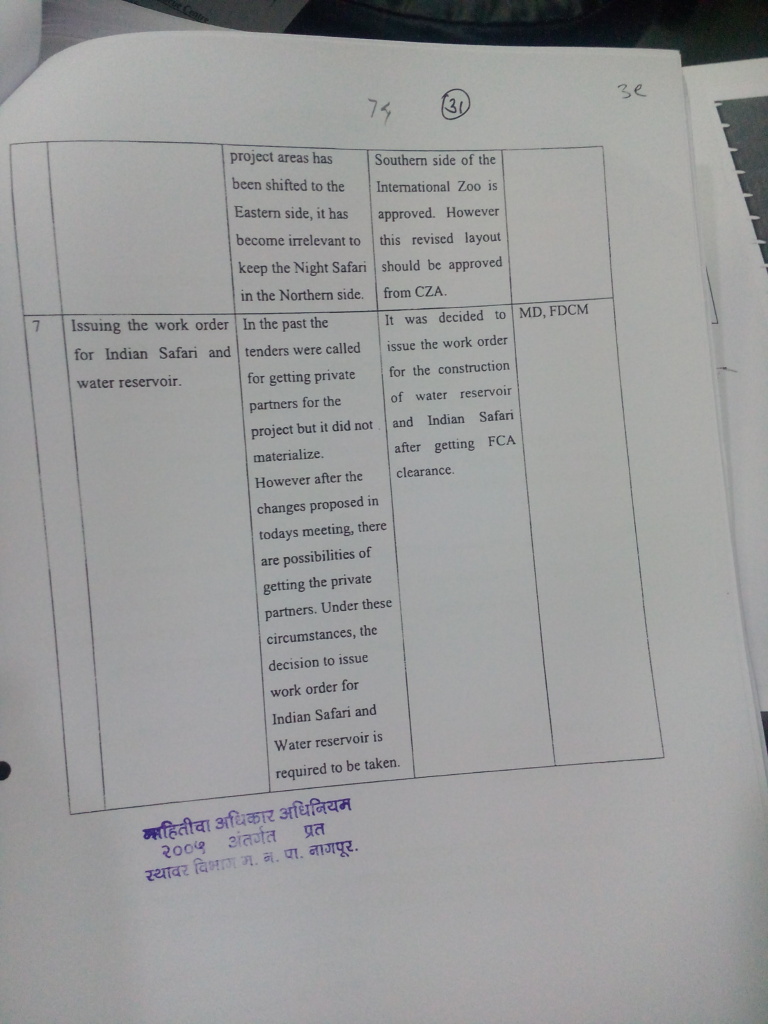 31
project areas has
been shifted to the
Eastern side, it has
become irrelevant to
keep the Night Safari
in the Northern side.
Southern side of the
International Zoo is
approved. However
this revised layout
should be approved
from CZA.
7
Issuing the work order
for Indian Safari and
water reservoir.
In the past the
tenders were called
for getting private
partners for the
project but it did not
materialize.
However after the
changes proposed in
todays meeting, there
are possibilities of
getting the private
partners. Under these
circumstances, the
decision to issue
work order for
Indian Safari and
Water reservoir is
required to be taken.
It was decided to
issue the work order
for the construction
of water reservoir
and Indian Safari
after getting FCA
clearance.
MD, FDCM
माहितीचा अधिकार अधिनियम
२००५ अंतर्गत प्रत
स्थावर विभाग म. न. पा. नागपूर.